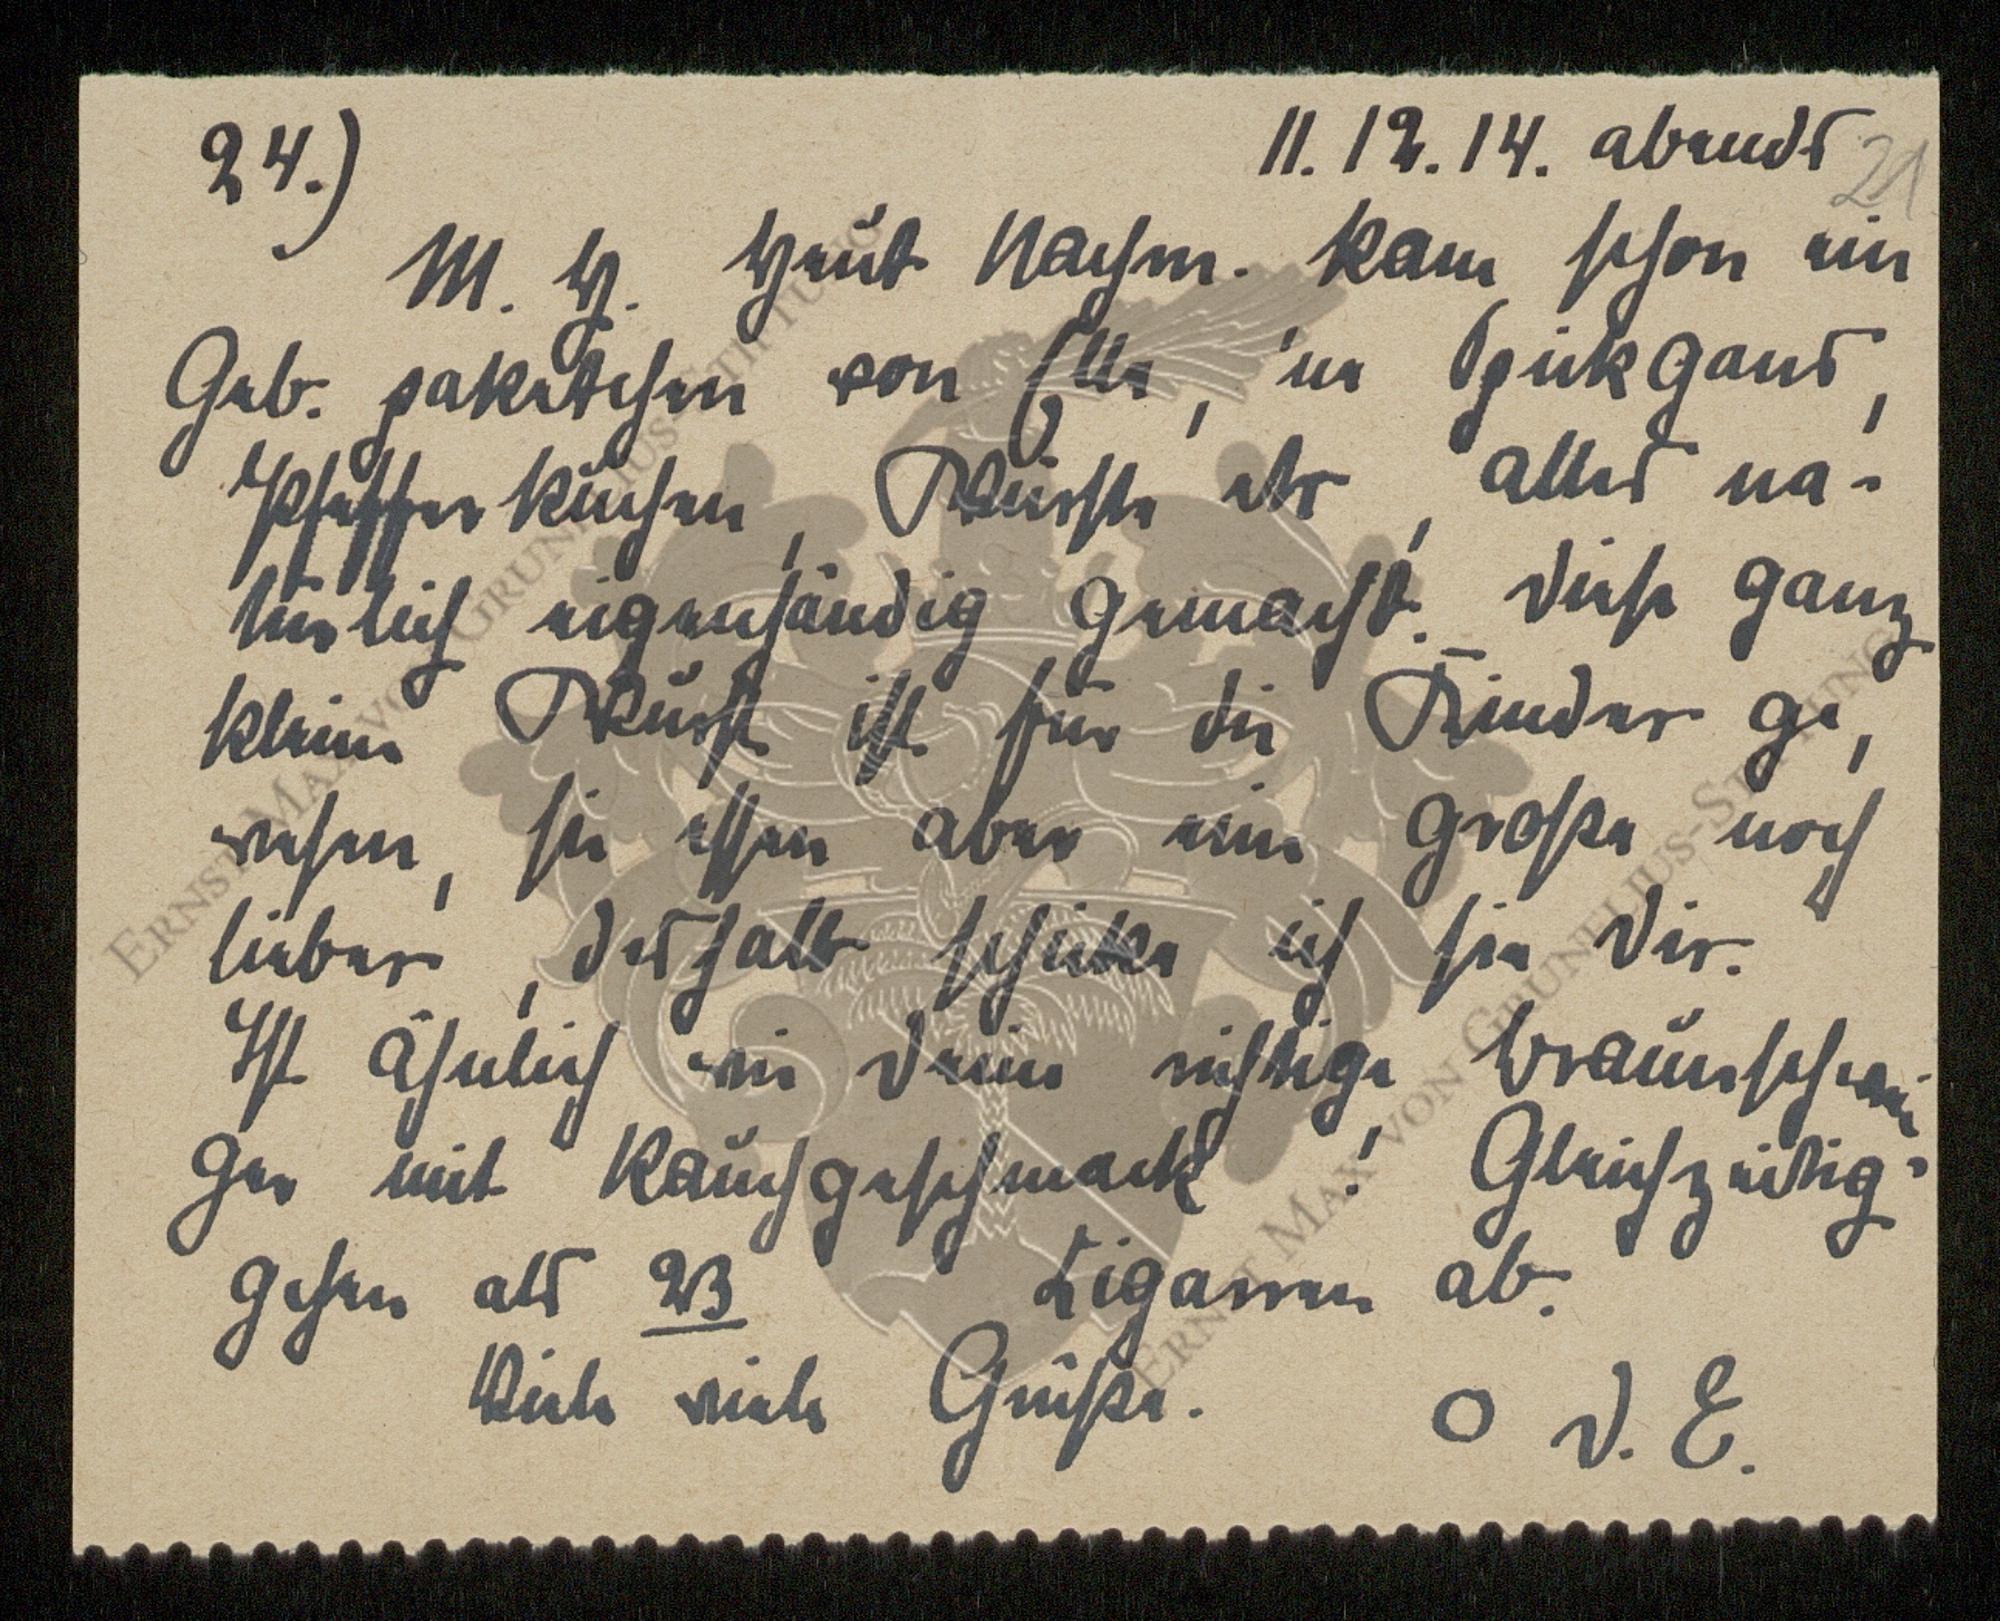 24.) 11.12.14. abends 21
M. H. Heut Nachm. kam schon ein
Geb. paketchen von Elle, 'ne Spickgans,
Pfefferkuchen, Würste etc, alles na-
türlich eigenhändig gemacht. Diese ganz
kleine Wurst ist für die Kinder ge,
wesen, sie essen aber eine große noch
lieber, deshalb schicke ich sie Dir.
Ist ähnlich wie Deine richtige Braunschwei
ger mit Rauchgeschmack! Gleichzeitig
gehen als 23 Zigarren ab.
Viele viele Grüße. O D. E.
ERNST MAX VON GRUNELIUS-STIFTUNG
ERNST MAX VON GRUNELIUS-STIFTUNG